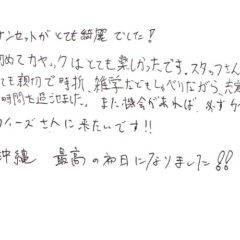 ンセットがとても綺麗でした!
めてカヤックはとても楽しかったです。スタッフさん
ても親切で時折、雑学などもしゃべりながら、充実
時間を過ごせました。また機会があれば、必ず
ィーズさんに来たいです!!
沖縄 最高の初日になりました!!